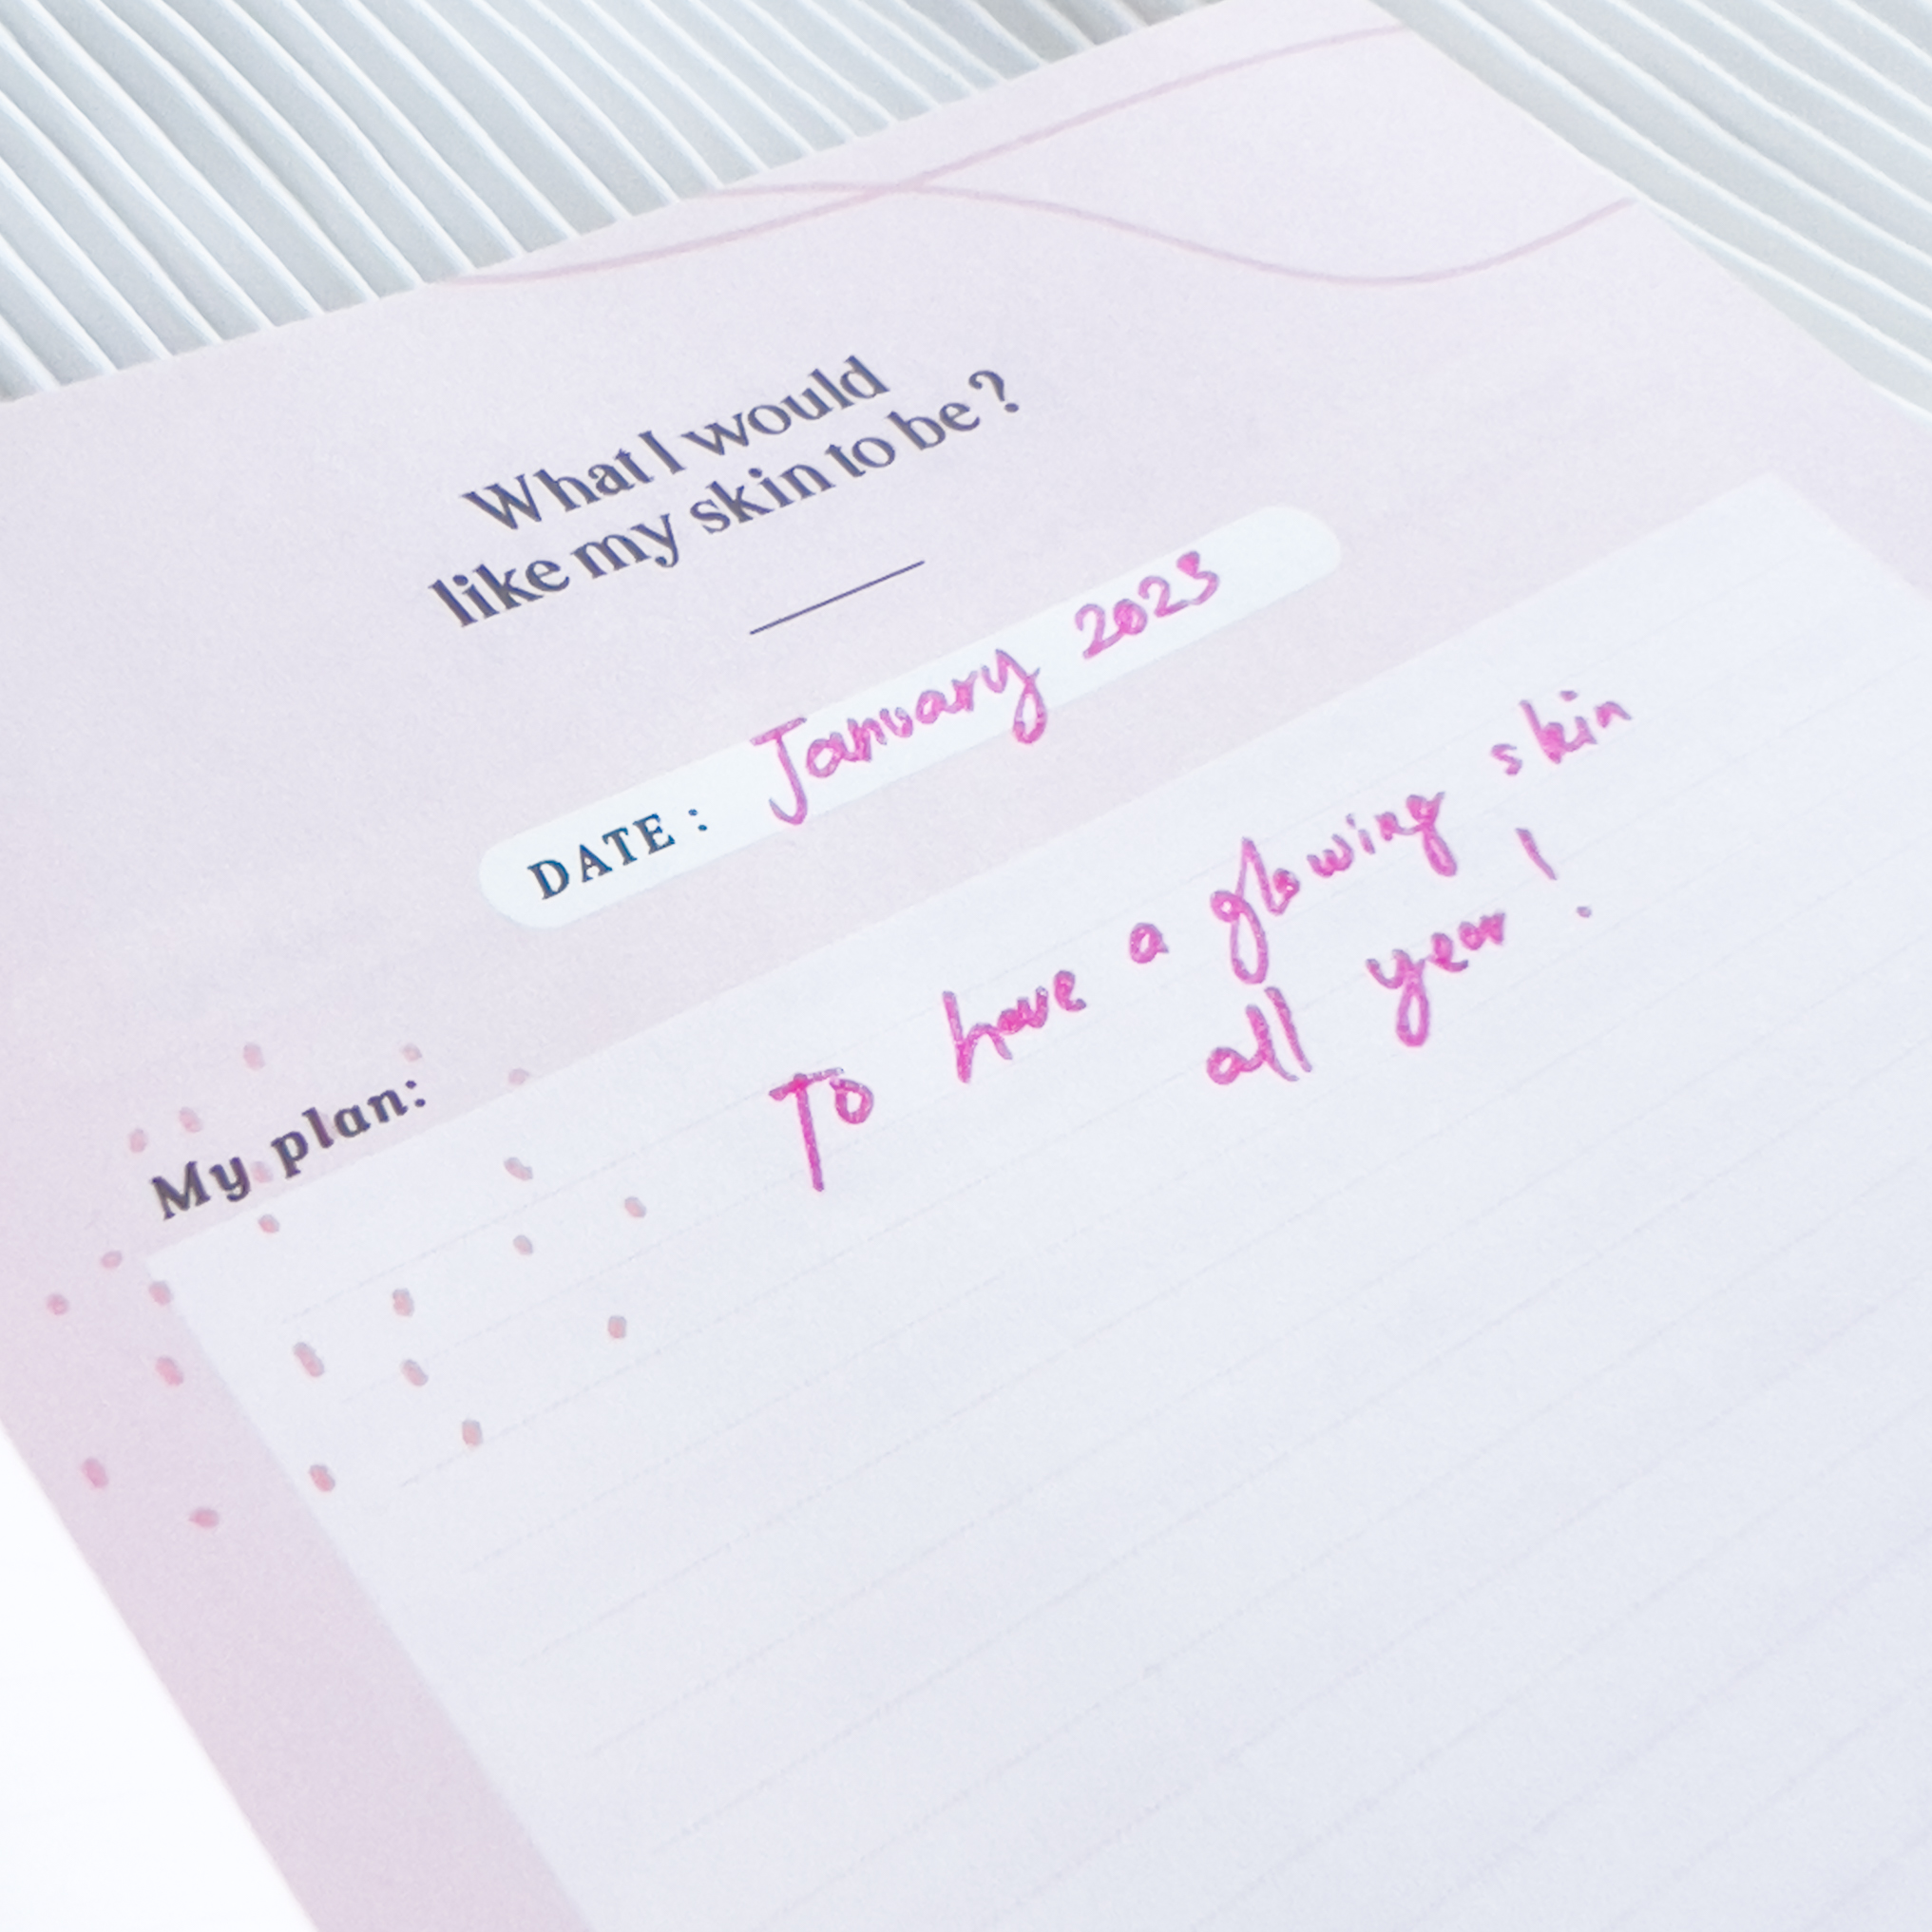 What I would
like my skin to be?
DATE: January 2023
My plan:
To have a glowing skin
all year!